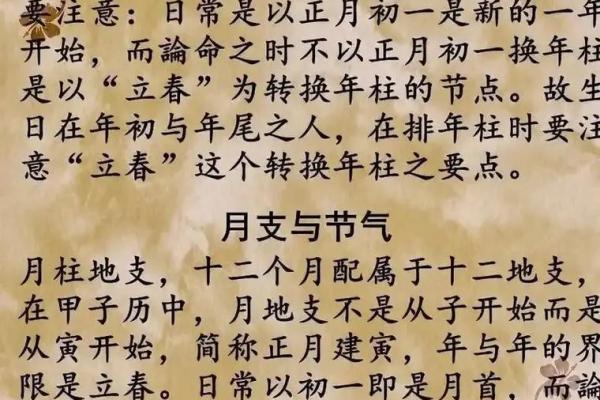 要注意：日常是以正月初一是新的一年
开始，而論命之时不以正月初一换年柱
是以“立春”为转换年柱的节点。故生
日在年初与年尾之人，在排年柱时要注
意“立春”这个转换年柱之要点。
月支与节气
月柱地支，十二个月配属于十二地支，
在甲子历中，月地支不是从子开始而是
从寅开始，简称正月建寅，年与年的界
限是立春。日常以初一即是月首，而論